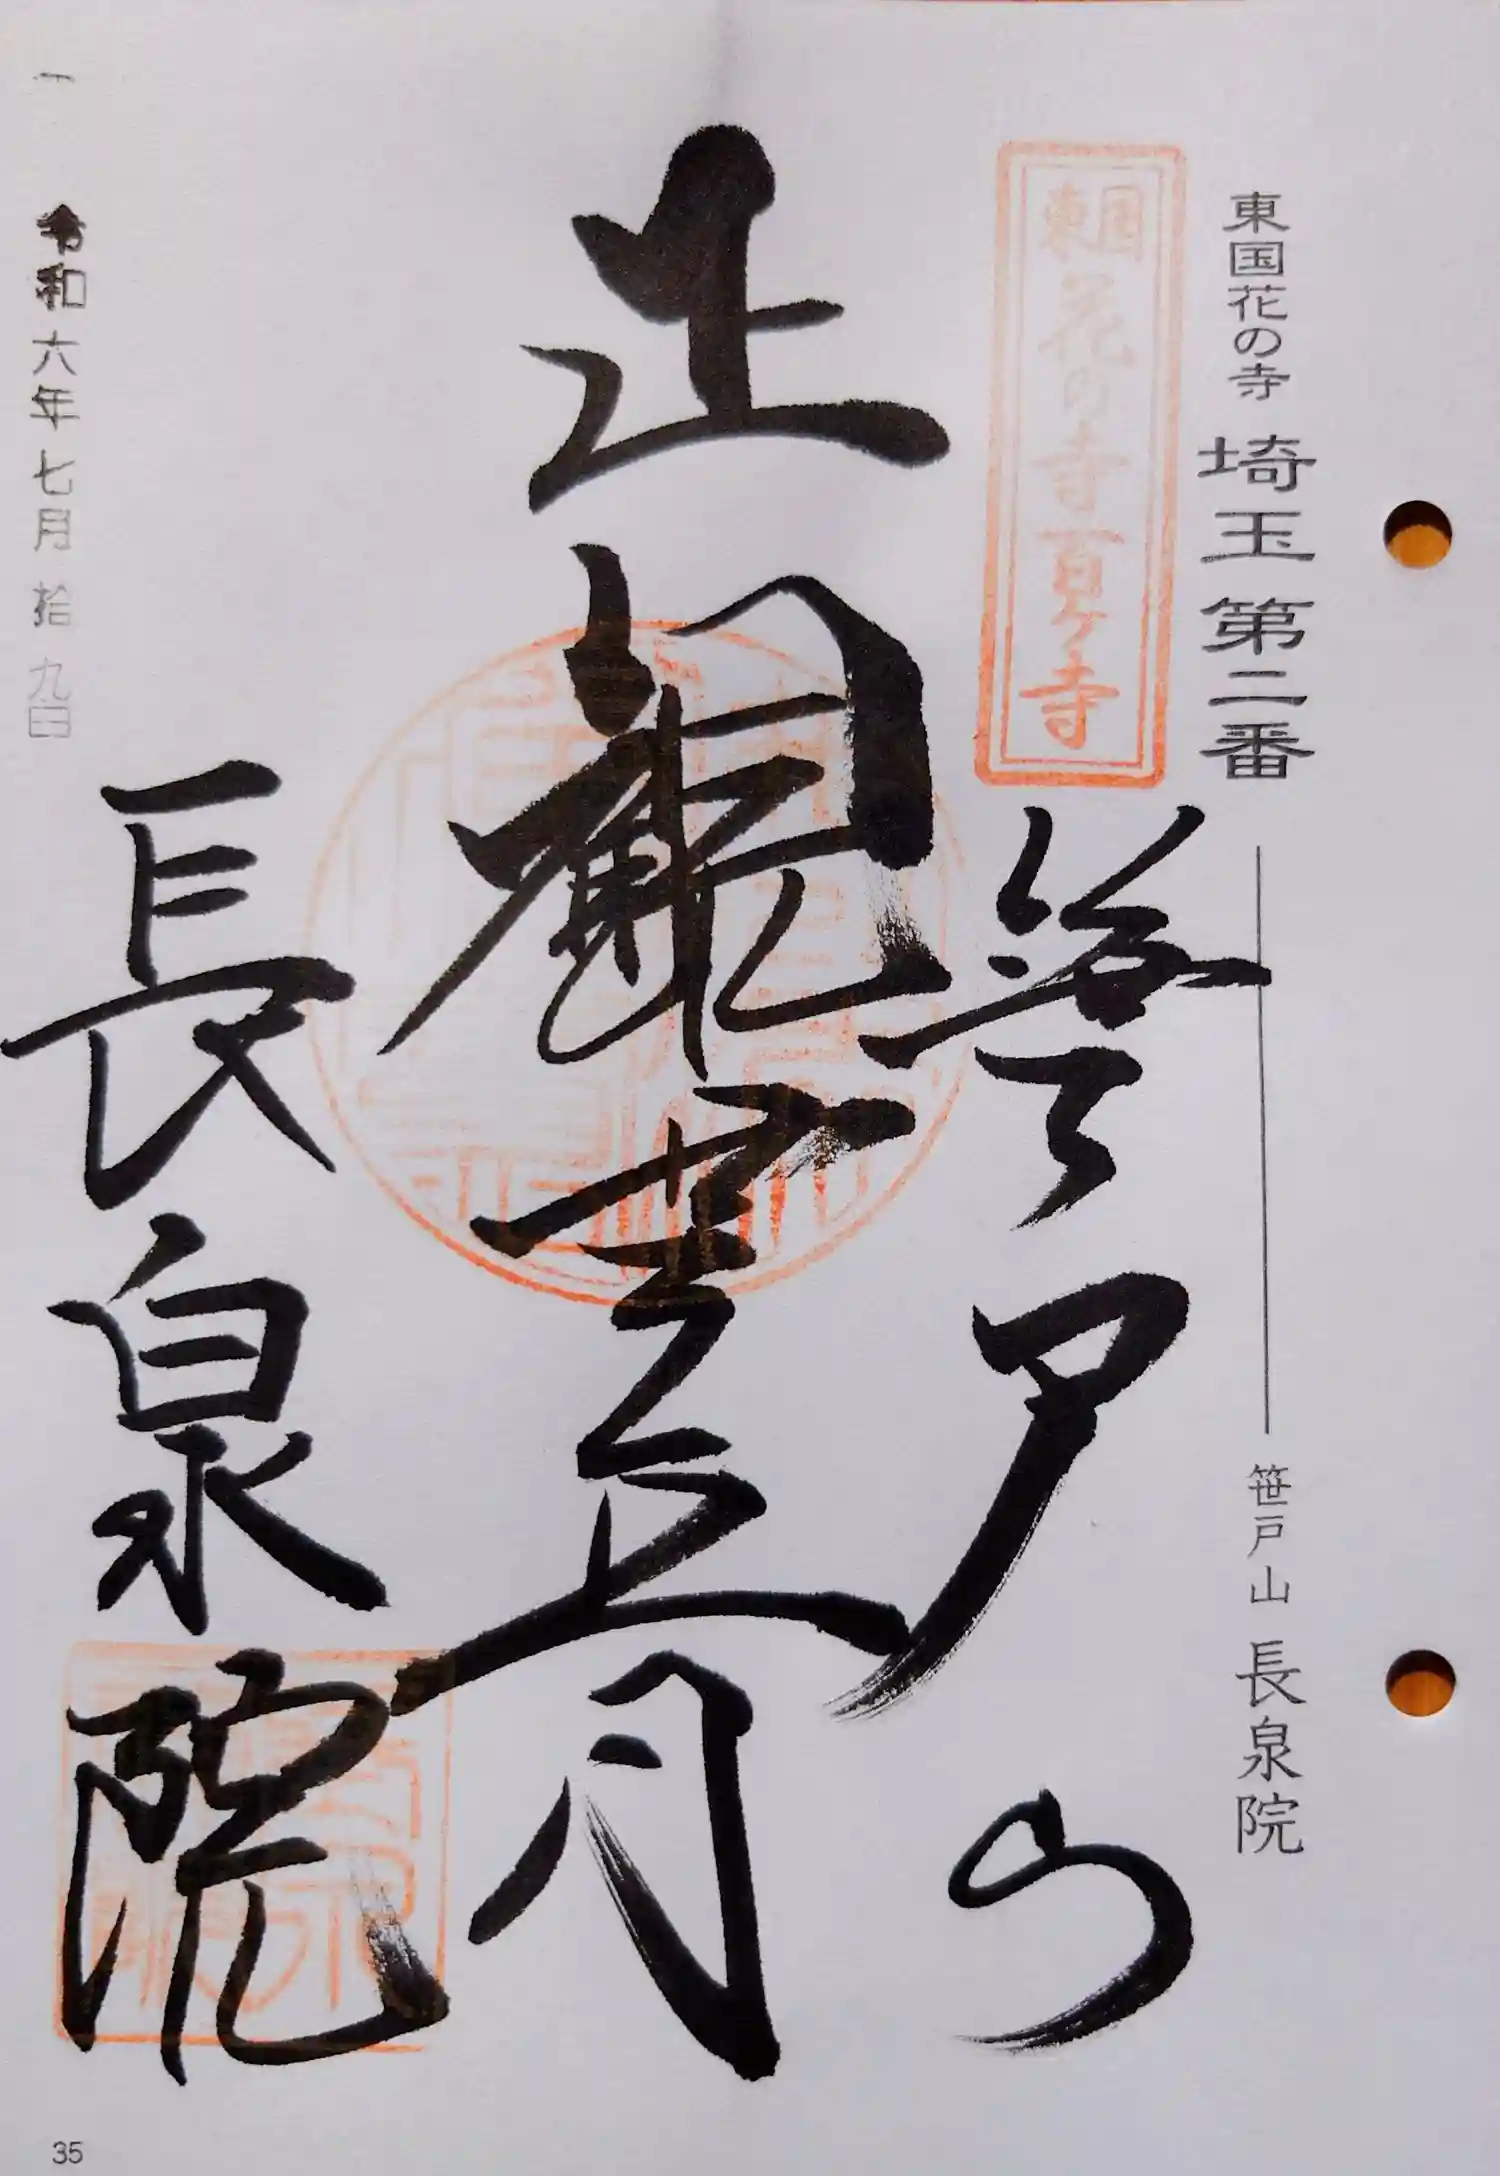 東国花の寺 埼玉第二番 笹戸山 長泉院
東国花の寺百ヶ寺
笹戸山
正観世音
長泉院
令和六年七月拾九日
35